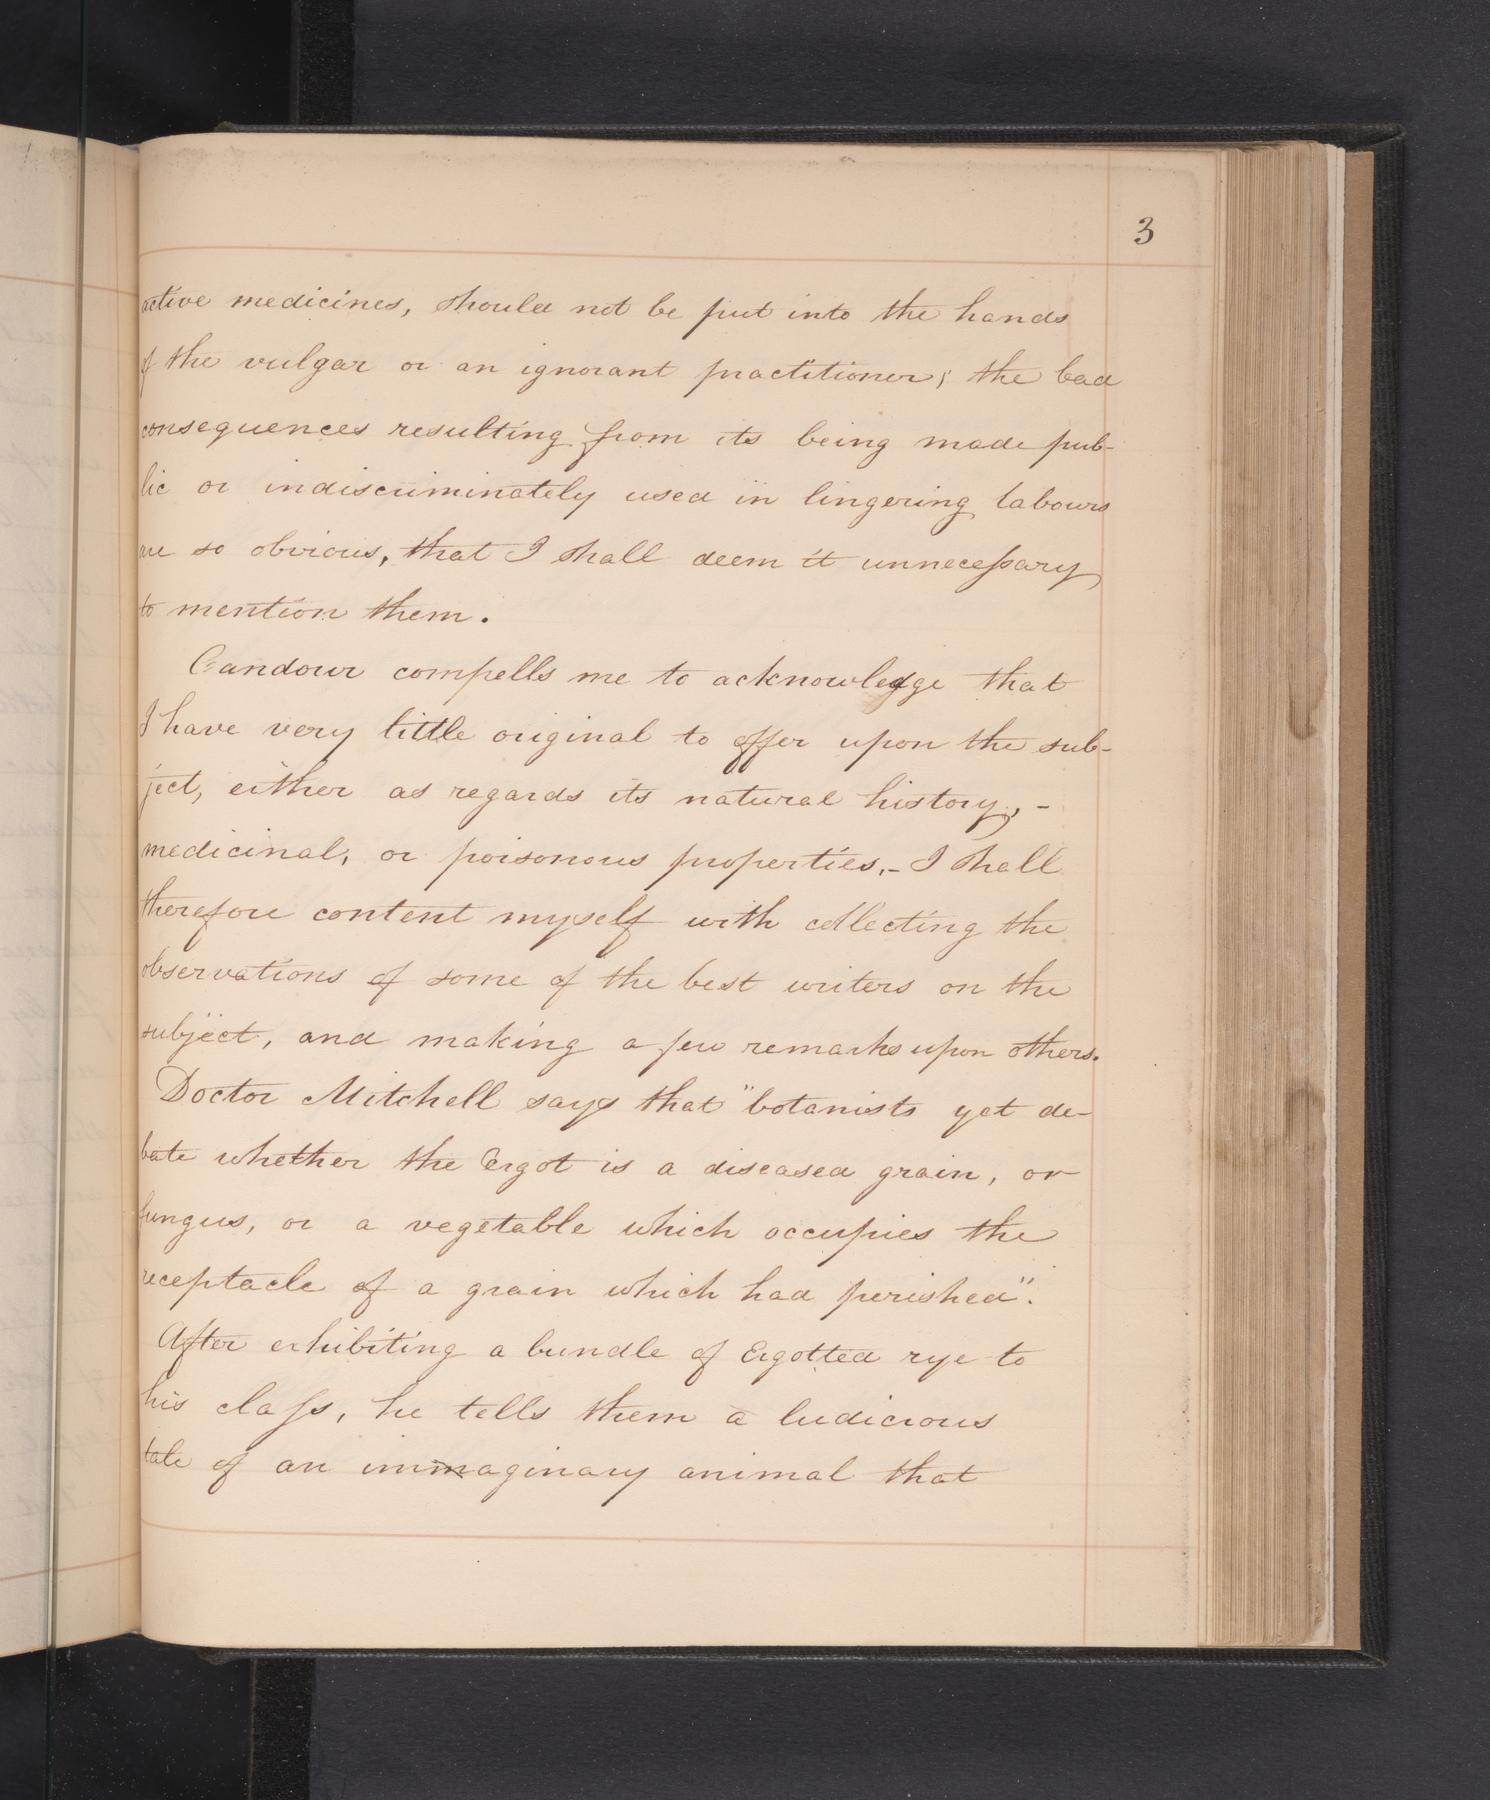 3
active medicines, should not be put into the hands
of the vulgar or an ignorant practitioner; the bad
consequences resulting from its being made pub-
lic or indiscriminately used in lingering labours
are so obvious, that I shall deem it unnecessary
to mention them.
Candour compells me to acknowledge that
I have very little original to offer upon the sub-
ject, either as regards its natural history, -
medicinal, or poisonous properties, - I shall
therefore content myself with collecting the
observations of some of the best writers on the
subject, and making a few remarks upon others.
Doctor Mitchell says that "botanists yet de-
bate whether the Ergot is a diseased grain, or
fungus, or a vegetable which occupies the
receptacle of a grain which had perished".
After exhibiting a bundle of Ergotted rye to
his class, he tells them a ludicrous
tale of an immaginary animal that